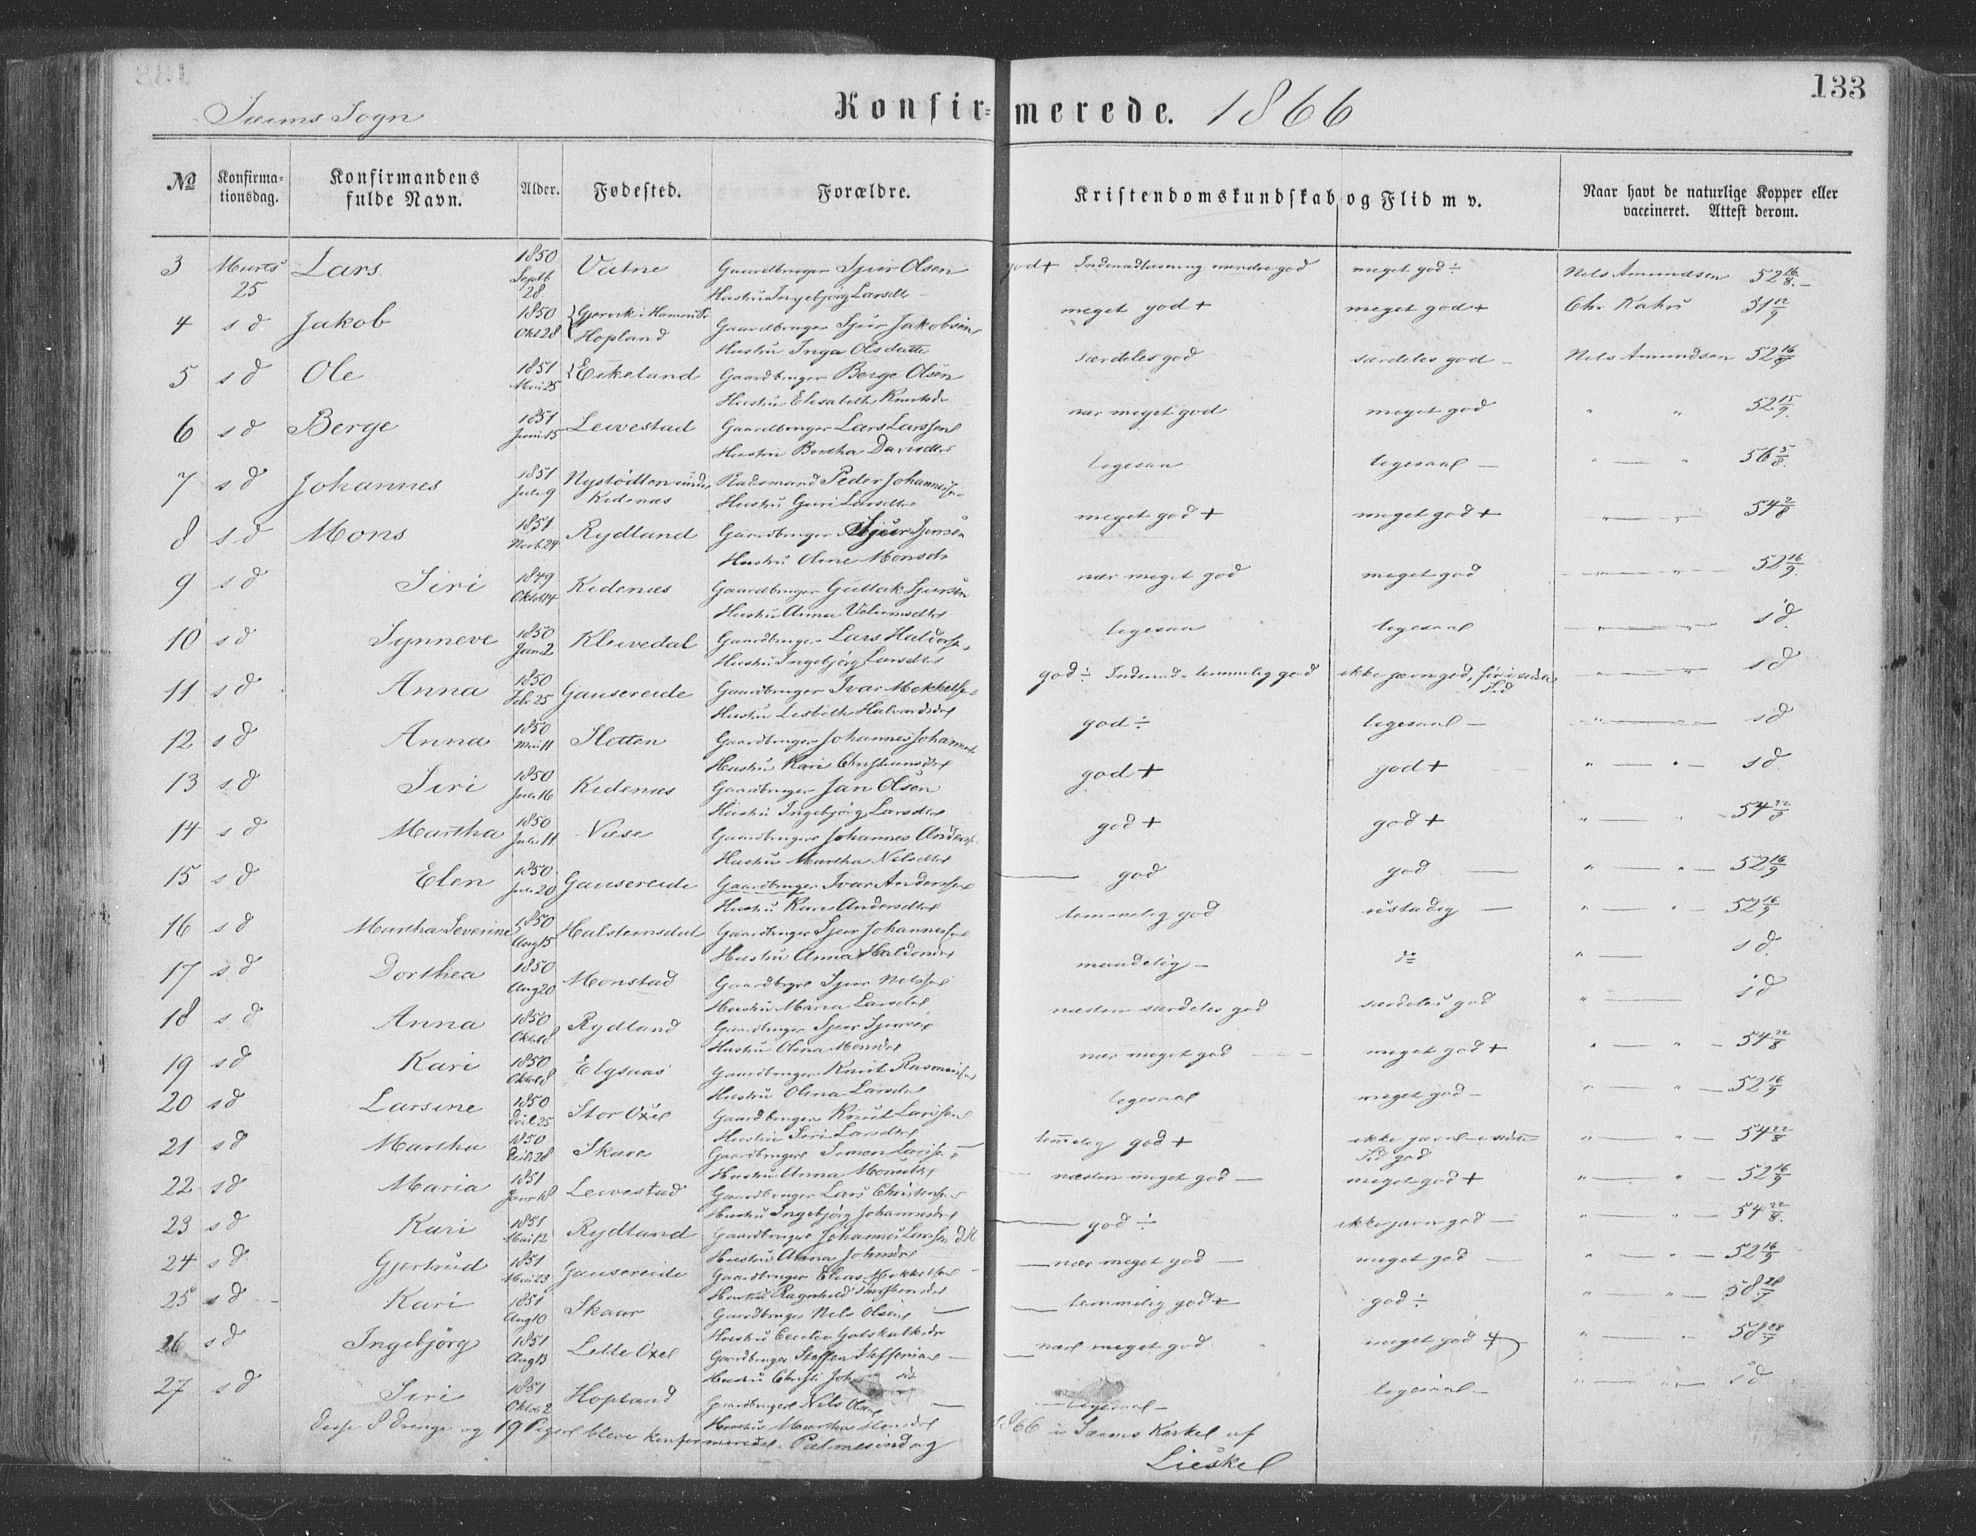 133
Sæims Sogn
Konfirmerede. 1866
№ Konfirmationsdag. Konfirmandens fulde Navn. Alder. Fødested. Forældre. Kristendomskundskab og Flid m v. Naar havt de naturlige Kopper eller vaccineret. Attest derom.
3 Marts 25 Lars 1850 Septb 28 Vatne Gaardbruger Sjur Olsen god + Indenadlæsning mindre god meget god ÷ Nels Amundsen 52 16/8
Hustru Ingebjörg Larsdtr
4 s d Jakob 1850 Okt 28 Gjervik i Hammer Hopland Gaardbruger Sjur Jakobsen meget god + meget god + Chr Kahrs 51 12/9
Hustru Inga Olsdatter
5 s d Ole 1851 Mai 25 Eikeland Gaardbruger Berge Olsen særdeles god særdeles god Nels Amundsen 52 16/8
Hustru Elisabeth Knutsdr
6 s d Berge 1851 Juni 15 Leivestad Gaardbruger Lars Larssen nær meget god meget god " " 52 15/9
Hustru Britha Davidsdtr
7 s d Johannes 1851 Juli 9 under Kidenæs Peder Johannessen legesaa legesaa — " — " 56 5/8
Hustru Guri Larsdtr
8 s d Mons 1851 Novb 24 Rydland Gaardbruger Sjur Sjursen meget god + meget god + " — " 54 2/8
Hustru Oline Monsdtr
9 s d Siri 1849 Oktob 14 Kidenæs Gaardbruger Gullak Sjursen nær meget god meget god " — " 52 16/9
Hustru Anna
10 s d Synneve 1850 Jan 2 Kleivedal Gaardbruger Lars Haldorsen legesaa legesaa " — " s d
Hustru Ingebjörg Larsdtr
11 s d Anna 1850 Febr 25 Gausereide Gaardbruger Ivar Mikkelsen god ÷ Indenad temmelig god ikke jævn god, " — " s d
Hustru Lisbeth Halvorsdtr
12 s d Anna 1850 Mai 11 Sletten Gaardbruger Johannes Johannes god ÷ legesaa — " — " s d
Hustru Kari Christiansdtr
13 s d Siri 1850 Juli 16 Kidenæs Gaardbruger Jan Olsen god + god + " — " s d
Hustru Ingebjörg Larsdtr
14 s d Martha 1850 Juli 14 Næse Gaardbruger Johannes Anders god + god + " — " 54 22/8
Hustru Martha Nilsdtr
15 s d Elen 1850 Juli 20 Gausereide Gaardbruger Ivar Anderssen god god " — " 52 16/9
Hustru Kari Andersdtr
16 s d Martha Severine 1850 Aug 15 Halsteinsdal Gaardbruger Sjur Johannessen temmelig god ustadig — " — " 52 16/9
Hustru Anna Haldorsdtr
17 s d Dorthea 1850 Aug 20 Monstad Gaardbrgr Sjur Nelssen maadelig — do " — s d
Hustru Maria Larsdtr
18 s d Anna 1850 Oktob 8 Rydland Gaardbruger Sjur Sjursen næsten særdeles god særdeles god " — s d
Hustru Olina Monsdtr
19 s d Kari 1850 Oktob 8 Elysaas Gaardbruger Knut Rasmussen nær meget god meget god + " — " 54 22/8
Hustru Olina Larsdtr
20 s d Larsine 1850 25 Stor Oxel Gaardbruger Knut Larssen legesaa meget god — " — " 52 16/9
Hustru Siri Larsdtr
21 s d Martha 1850 28 Skare Gaardbruger Simon Larssen temelig god + ikke jævn " — " 54 22/8
Hustru Anna Monsdtr Tid god
22 s d Maria 1851 Janr 18 Leivestad Gaardbruger Lars Christensen næsten meget god — meget god + " — " 52 16/9
Hustru Ingebjörg Johannesdtr
23 s d Kari 1851 Mai 12 Rydland Gaardbruger Johannes Larssen god ÷ ikke jævn god — " — " 54 22/8
Hustru Anna Johnsdtr
24 s d Gjertrud 1851 Mai 23 Gausereide Gaardbruger Elias Mikkelsen nær meget god — meget god — " — " 52 16/9
Hustru Ragnhild
25 s d Kari 1851 Aug 10 Skaar Gaardbruger Nels Olsen temmelig god + god ÷ " — " 58 28/7
Hustru Cecilia Gotskalksdr
26 s d Ingebjörg 1851 Aug 13 Letle Oxel Gaardbruger Steffen Steffensen nær meget god meget god + " — " 58 28/9
Hustru Christi
27 s d Siri 1851 Oktob 2 Hopland Gaardbruger Nils Olsen legesaa — legesaa — " — " s d
Hustru Martha Monsdtr
disse 8 drenge og 19 Piger bleve konfirmerede Palmesindag 1866 i Sæims Kirke af